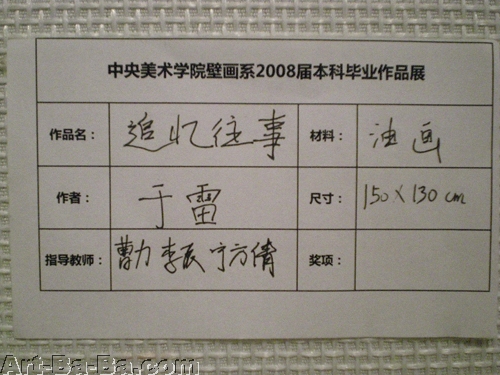 中央美术学院壁画系2008届本科毕业作品展
作品名： 追忆往事 材料： 油画
作者： 于雷 尺寸： 150X130cm
指导教师： 曹力 李辰 宁方倩 奖项：
Art-Ba-Ba.com